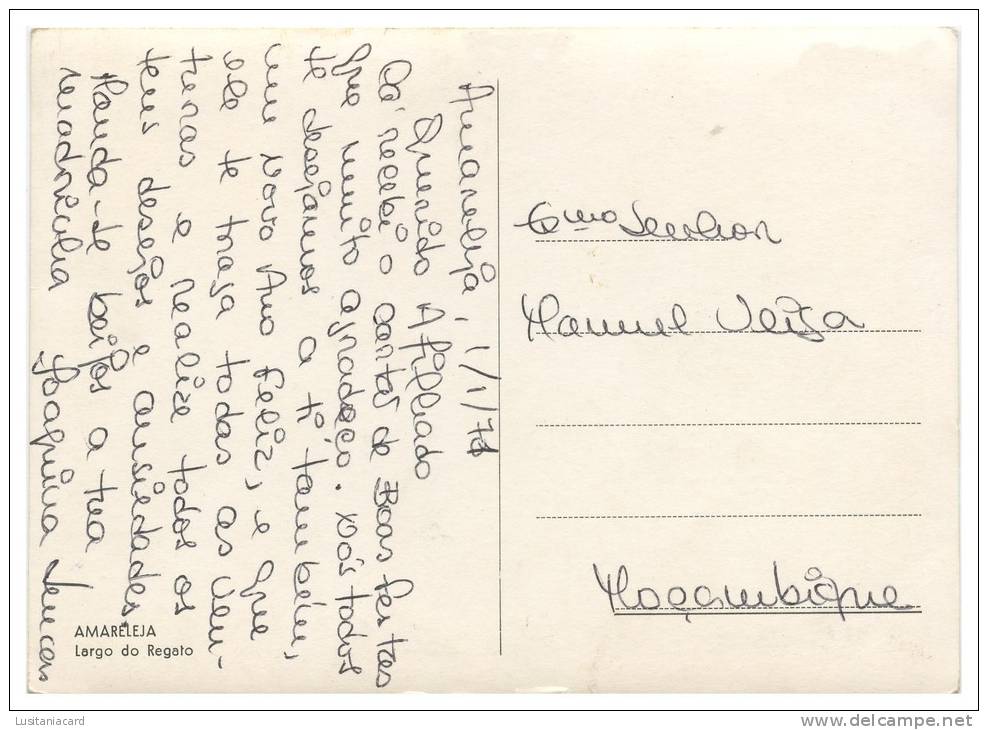 Amareleja, 1/1/71
Querido Afilhado
Cá recebi o cartão de Boas festas
que muito agradeço. Nós todos
te desejamos a ti também,
um novo Ano feliz, e que
ele te traga todas as ven-
turas e realize todos os
teus desejos e ansiedades.
Manda-te beijos a tua
madrinha Joaquina
Exmo Senhor
Manuel Veiga
Moçambique
AMARELEJA
Largo do Regato
Lusitaniacard
www.delcampe.net